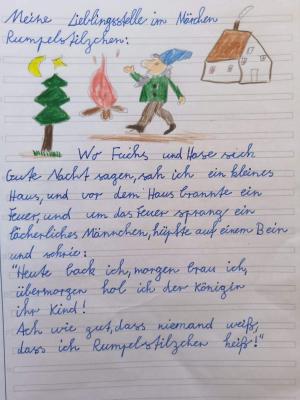 Meine Lieblingsstelle im Märchen
Rumpelstilzchen:
Wo Fuchs und Hase sich
Gute Nacht sagen, sah ich ein kleines
Haus, und vor dem Haus brannte ein
Feuer, und um das Feuer sprang ein
lächerliches Männchen, hüpfte auf einem Bein
und schrie:
"Heute back ich, morgen brau ich,
übermorgen hol ich der Königin
ihr Kind!
Ach wie gut, dass niemand weiß,
dass ich Rumpelstilzchen heiß!"